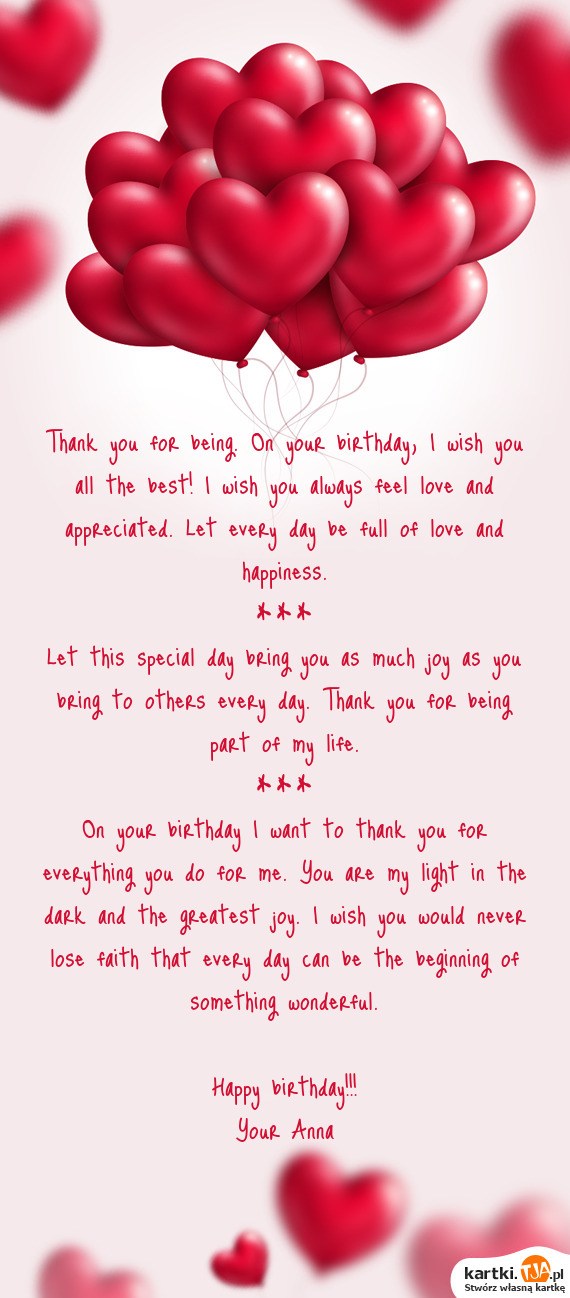 Thank you for being. On your birthday, I wish you
all the best! I wish you always feel love and
appreciated. Let every day be full of love and
happiness.
***
Let this special day bring you as much joy as you
bring to others every day. Thank you for being
part of my life.
***
On your birthday I want to thank you for
everything you do for me. You are my light in the
dark and the greatest joy. I wish you would never
lose faith that every day can be the beginning of
something wonderful.
Happy birthday!!!
Your Anna
kartki.TJA.pl
Stwórz własną kartkę